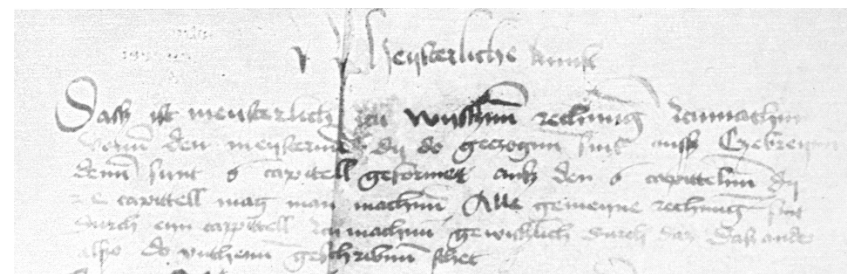 Meysterliche kunst
Dasz ist meysterlich zcu wysszenn rechnung zcumachin
vonn den meysternn dy do geczogin sint ausz
denn sunt 6 capittell geformet ausz den 6 capittelnn dy
capittell mag man machinn Alle gemeyne rechnung sint
durch eyn cappittell zcu machinn gewisszlich durch das das ander
alszo do vnthenn geschribinn sthet